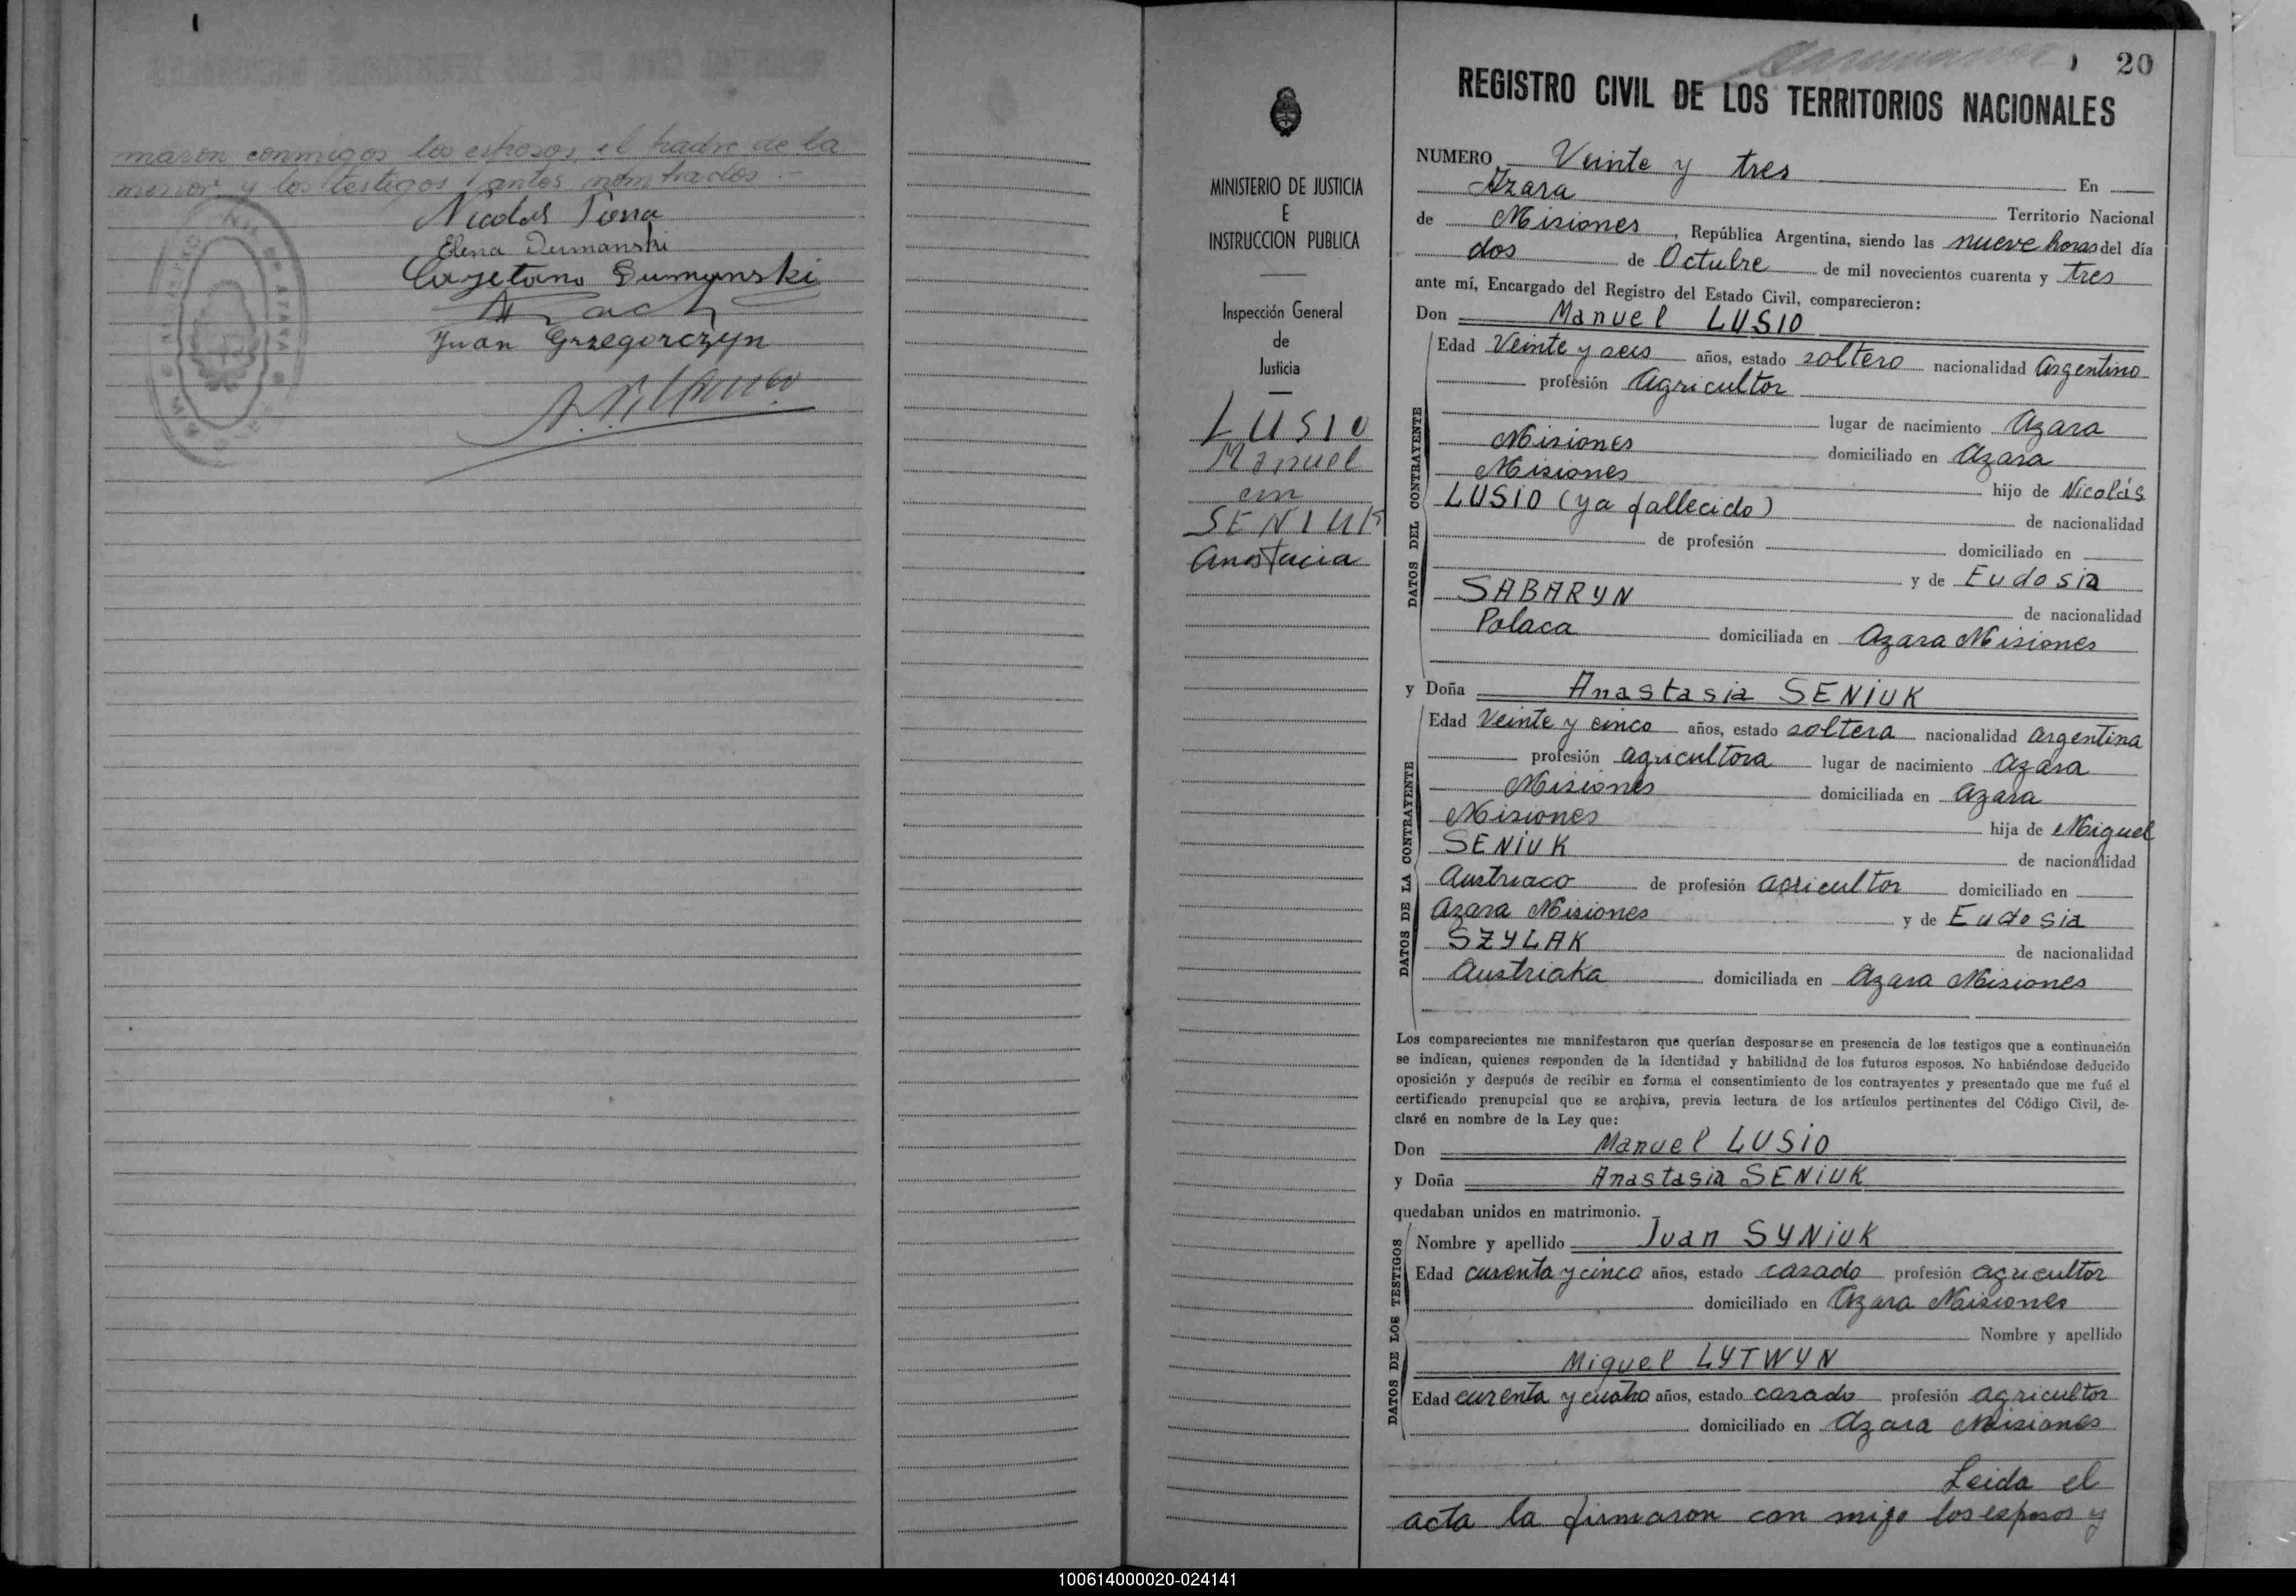 maron conmigos los esposos, el padre de la
menor y los testigos antes nombrados.-
Nicolas
Elena Dumanski
Cayetano Dumanski
Juan Grzegorczyn
MINISTERIO DE JUSTICIA
E
INSTRUCCION PUBLICA
Inspección General
de
Justicia
LUSIO
Manuel
con
SENIUK
Anastacia
20
REGISTRO CIVIL DE LOS TERRITORIOS NACIONALES
NUMERO Veinte y tres En
Azara Territorio Nacional
de Misiones, República Argentina, siendo las nueve horas del día
dos de Octubre de mil novecientos cuarenta y tres
ante mí, Encargado del Registro del Estado Civil, comparecieron:
Don Manuel LUSIO
Edad Veinte y seis años, estado soltero nacionalidad Argentino
profesión Agricultor
lugar de nacimiento Azara
Misiones domiciliado en Azara
Misiones hijo de Nicolás
LUSIO (ya fallecido) de nacionalidad
de profesión domiciliado en
y de Eudosia
SABARYN de nacionalidad
Polaca domiciliada en Azara Misiones
DATOS DEL CONTRAYENTE
y Doña Anastasia SENIUK
Edad Veinte y cinco años, estado soltera nacionalidad argentina
profesión agricultora lugar de nacimiento Azara
Misiones domiciliada en Azara
Misiones hija de Miguel
SENIUK de nacionalidad
Austriaco de profesión agricultor domiciliado en
Azara Misiones y de Eudosia
SZYLAK de nacionalidad
Austriaka domiciliada en Azara Misiones
DATOS DE LA CONTRAYENTE
Los comparecientes me manifestaron que querían desposarse en presencia de los testigos que a continuación
se indican, quienes responden de la identidad y habilidad de los futuros esposos. No habiéndose deducido
oposición y después de recibir en forma el consentimiento de los contrayentes y presentado que me fué el
certificado prenupcial que se archiva, previa lectura de los artículos pertinentes del Código Civil, de-
claré en nombre de la Ley que:
Don Manuel LUSIO
y Doña Anastasia SENIUK
quedaban unidos en matrimonio.
Nombre y apellido Juan SYNIUK
Edad curenta y cinco años, estado casado profesión agricultor
domiciliado en Azara Misiones
Nombre y apellido
Miguel LYTWYN
Edad curenta y cuatro años, estado casado profesión agricultor
domiciliado en Azara Misiones
DATOS DE LOS TESTIGOS
Leida el
acta la firmaron con migo los esposos y
100614000020-024141